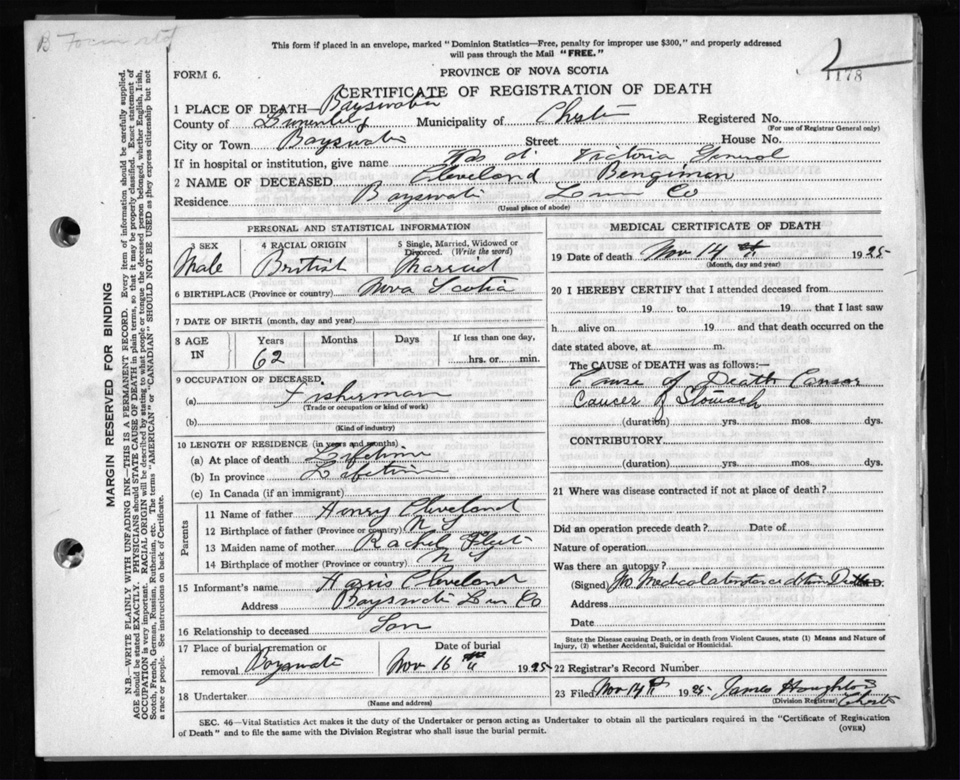 This form if placed in an envelope, marked "Dominion Statistics—Free, penalty for improper use $300," and properly addressed
will pass through the Mail "FREE."
1178
FORM 6.
PROVINCE OF NOVA SCOTIA
CERTIFICATE OF REGISTRATION OF DEATH
1 PLACE OF DEATH— Bayswater
County of Municipality of Chester Registered No.
(For use of Registrar General only)
City or Town Bayswater Street House No.
If in hospital or institution, give name Victoria General
2 NAME OF DECEASED Cleveland Bengiman
Residence Bayswater Lun Co
(Usual place of abode)
PERSONAL AND STATISTICAL INFORMATION
3 SEX Male
4 RACIAL ORIGIN British
5 Single, Married, Widowed or Divorced. (Write the word) Married
6 BIRTHPLACE (Province or country) Nova Scotia
7 DATE OF BIRTH (month, day and year)
8 AGE IN Years 62 Months Days If less than one day, hrs. or min.
9 OCCUPATION OF DECEASED
(a) Fisherman
(Trade or occupation or kind of work)
(b)
(Kind of industry)
10 LENGTH OF RESIDENCE (in years and months)
(a) At place of death Lifetime
(b) In province Lifetime
(c) In Canada (if an immigrant)
Parents
11 Name of father Henry Cleveland
12 Birthplace of father (Province or country) N S
13 Maiden name of mother Rachel
14 Birthplace of mother (Province or country) N S
15 Informant's name Harris Cleveland
Address Bayswater Lun Co
16 Relationship to deceased Son
17 Place of burial, cremation or removal Bayswater
Date of burial Nov 16 th 1925
18 Undertaker
(Name and address)
MEDICAL CERTIFICATE OF DEATH
19 Date of death Nov 14 th 1925
(Month, day and year)
20 I HEREBY CERTIFY that I attended deceased from
19 to 19 that I last saw
h alive on 19 and that death occurred on the
date stated above, at m.
The CAUSE OF DEATH was as follows:—
Cause of Death Cansar
Cancer of Stomach
(duration) yrs. mos. dys.
CONTRIBUTORY
(duration) yrs. mos. dys.
21 Where was disease contracted if not at place of death?
Did an operation precede death? Date of
Nature of operation
Was there an autopsy?
(Signed) No Medical M.D.
Address
Date
State the Disease causing Death, or in death from Violent Causes, state (1) Means and Nature of
Injury, (2) whether Accidental, Suicidal or Homicidal.
22 Registrar's Record Number
23 Filed Nov 14 th 1925 James Houghton
(Division Registrar) Chester
SEC. 46—Vital Statistics Act makes it the duty of the Undertaker or person acting as Undertaker to obtain all the particulars required in the "Certificate of Registration
of Death" and to file the same with the Division Registrar who shall issue the burial permit.
(OVER)
MARGIN RESERVED FOR BINDING
N.B.—WRITE PLAINLY WITH UNFADING INK—THIS IS A PERMANENT RECORD. Every item of information should be carefully supplied.
AGE should be stated EXACTLY. PHYSICIANS should STATE CAUSE OF DEATH in plain terms, so that it may be properly classified. Exact statement of
OCCUPATION is very important. RACIAL ORIGIN will be described by stating to what people or tongue the deceased person belonged, whether English, Irish,
Scotch, French, German, Russian, Ruthenian, etc. The terms "AMERICAN" or "CANADIAN" SHOULD NOT BE USED as they express citizenship but not
a race or people. See instructions on back of Certificate.